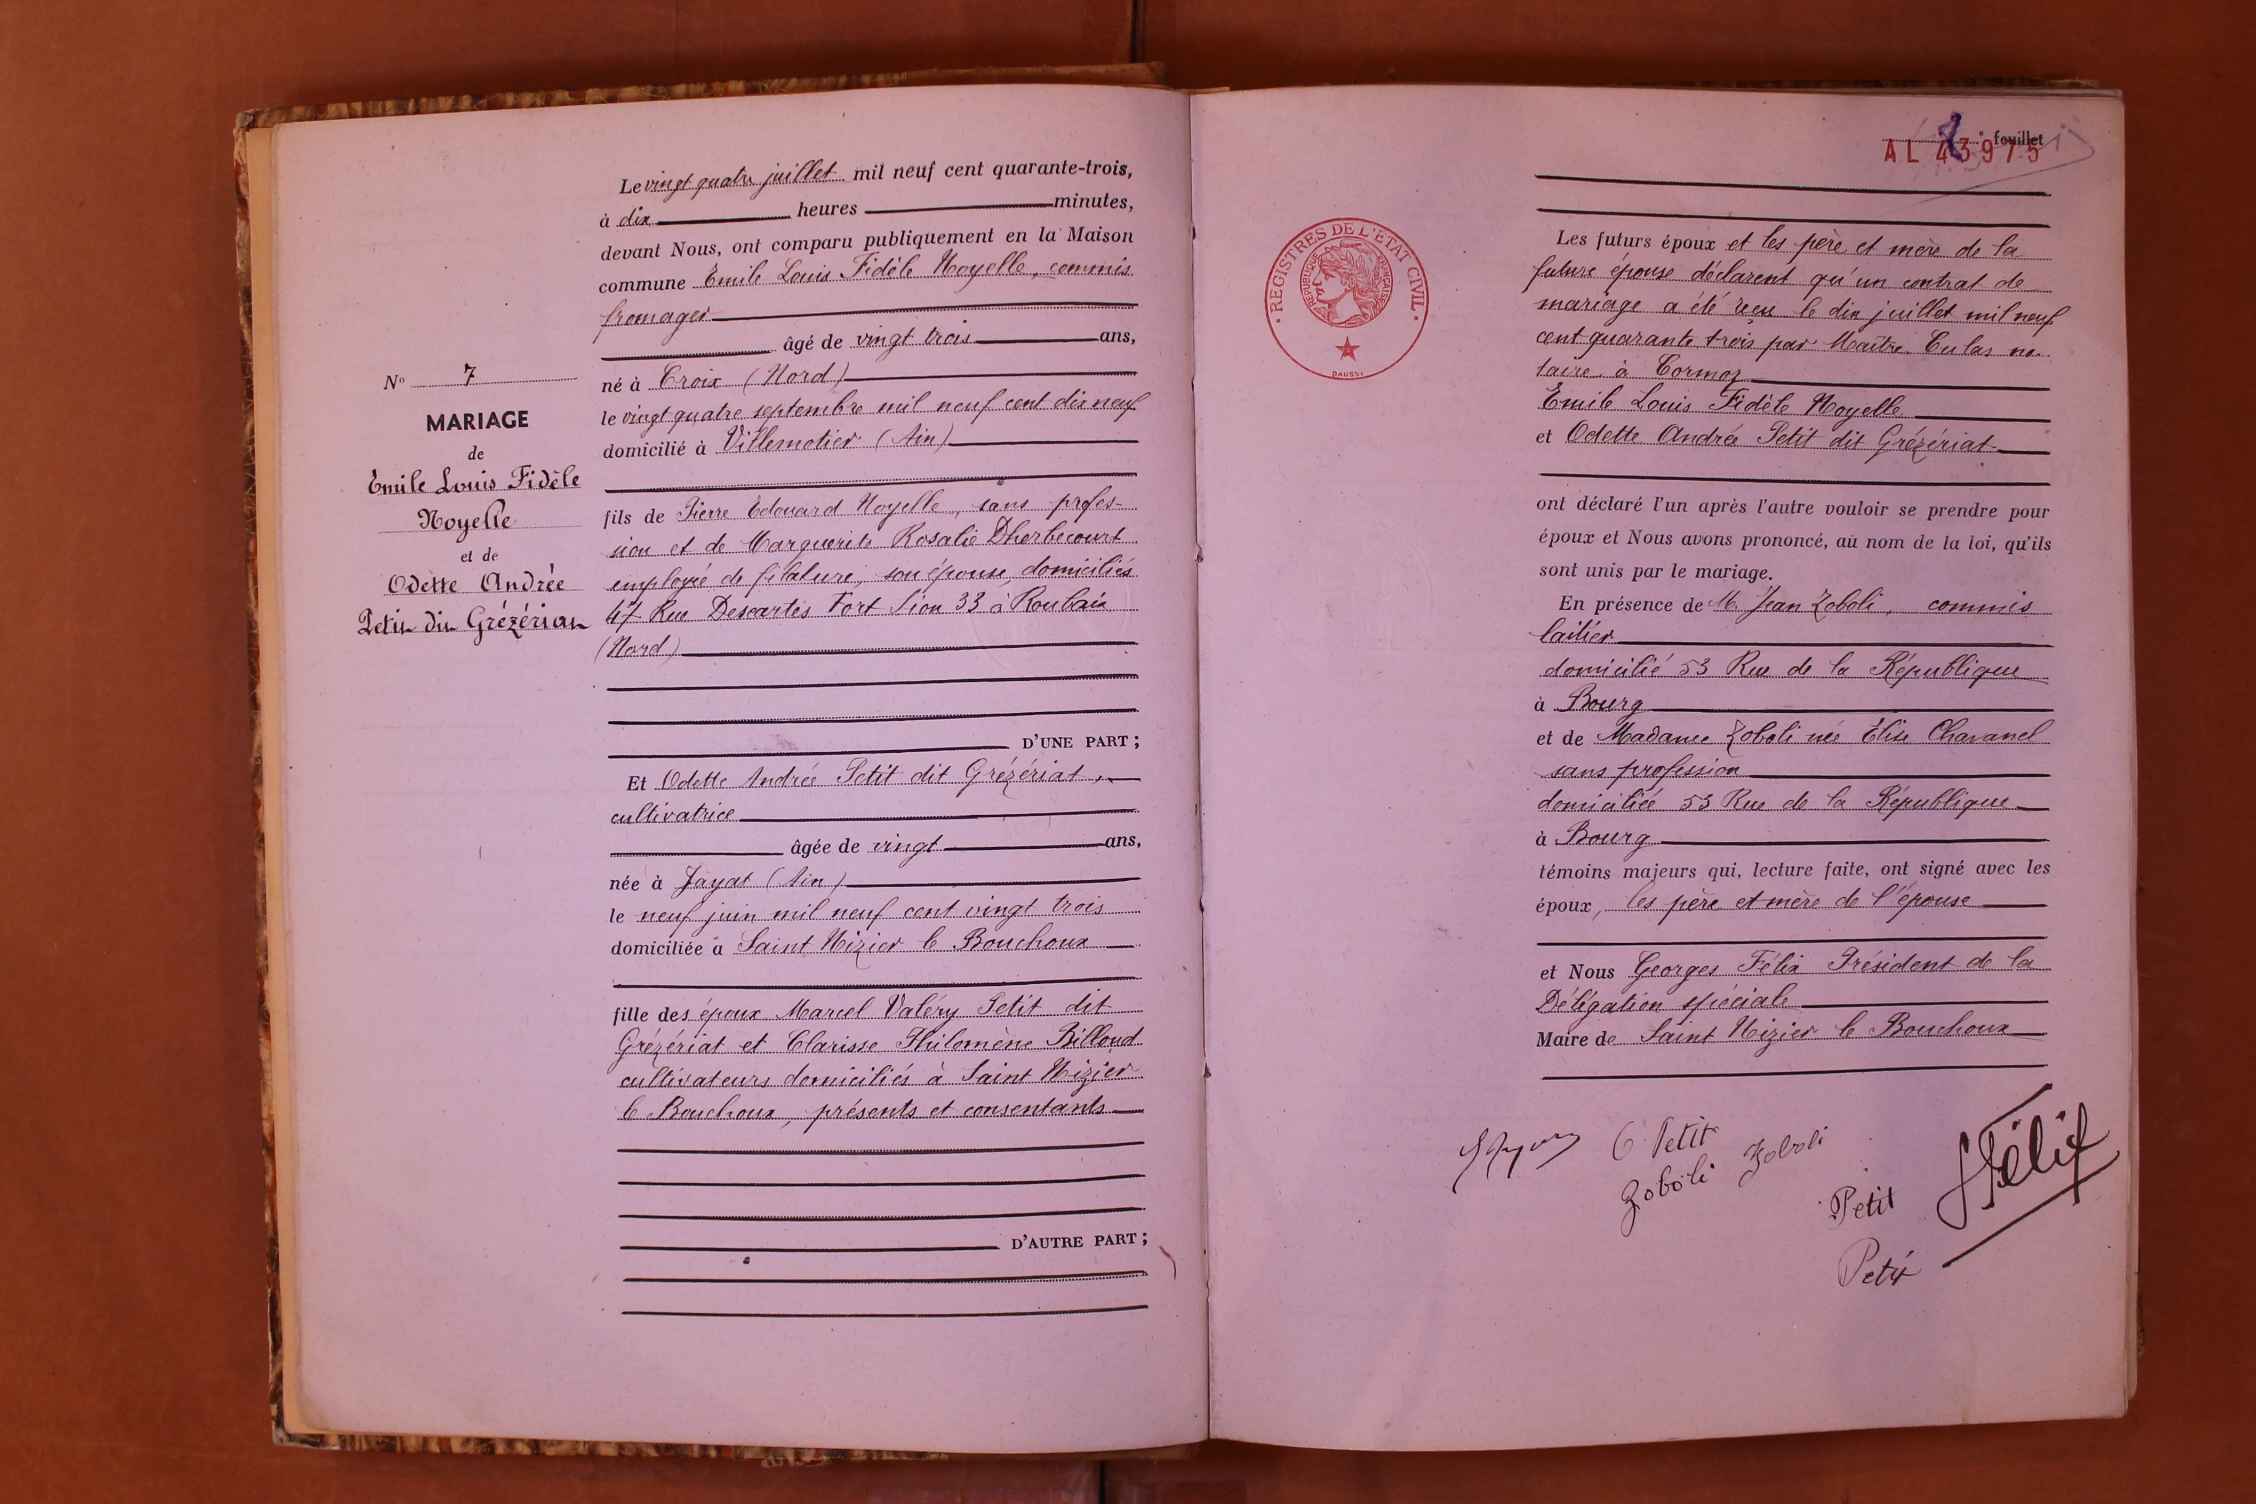 Le vingt quatre juillet mil neuf cent quarante-trois,
à dix heures minutes,
devant Nous, ont comparu publiquement en la Maison
commune Emile Louis Fidèle Noyelle, commis
fromager
âgé de vingt trois ans,
né à Croix (Nord)
le vingt quatre septembre mil neuf cent dix neuf
domicilié à Villemotier (Ain)
fils de Pierre Edouard Noyelle, sans profes-
sion et de Marguerite Rosalie Dherbecourt
employée de filature, son épouse, domiciliés
47 Rue Descartes Fort Sion 33 à Roubaix
(Nord)
D'UNE PART ;
Et Odette Andrée Petit dit Grézériat,
cultivatrice
âgée de vingt ans,
née à Jayat (Ain)
le neuf juin mil neuf cent vingt trois
domiciliée à Saint Nizier le Bouchoux
fille des époux Marcel Valéry Petit dit
Grézériat et Clarisse Philomène Billoud
cultivateurs domiciliés à Saint Nizier
le Bouchoux, présents et consentants
D'AUTRE PART ;
N° 7
MARIAGE
de
Emile Louis Fidèle
Noyelle
et de
Odette Andrée
Petit dit Grézériat
fouillet
AL 43975
REGISTRES DE L'ÉTAT CIVIL
RÉPUBLIQUE FRANÇAISE
DAUSSY
Les futurs époux et les père et mère de la
future épouse déclarent qu'un contrat de
mariage a été reçu le dix juillet mil neuf
cent quarante trois par Maître Culas no-
taire à Cormoz
Emile Louis Fidèle Noyelle
et Odette Andrée Petit dit Grézériat
ont déclaré l'un après l'autre vouloir se prendre pour
époux et Nous avons prononcé, au nom de la loi, qu'ils
sont unis par le mariage.
En présence de M. Jean Zoboli, commis
laitier
domicilié 53 Rue de la République
à Bourg
et de Madame Zoboli née Elise Chavanel
sans profession
domiciliée 53 Rue de la République
à Bourg
témoins majeurs qui, lecture faite, ont signé avec les
époux, les père et mère de l'épouse
et Nous Georges Félix Président de la
Délégation spéciale
Maire de Saint Nizier le Bouchoux
O Petit
Zoboli
Zoboli
Petit
GFélix
Petit